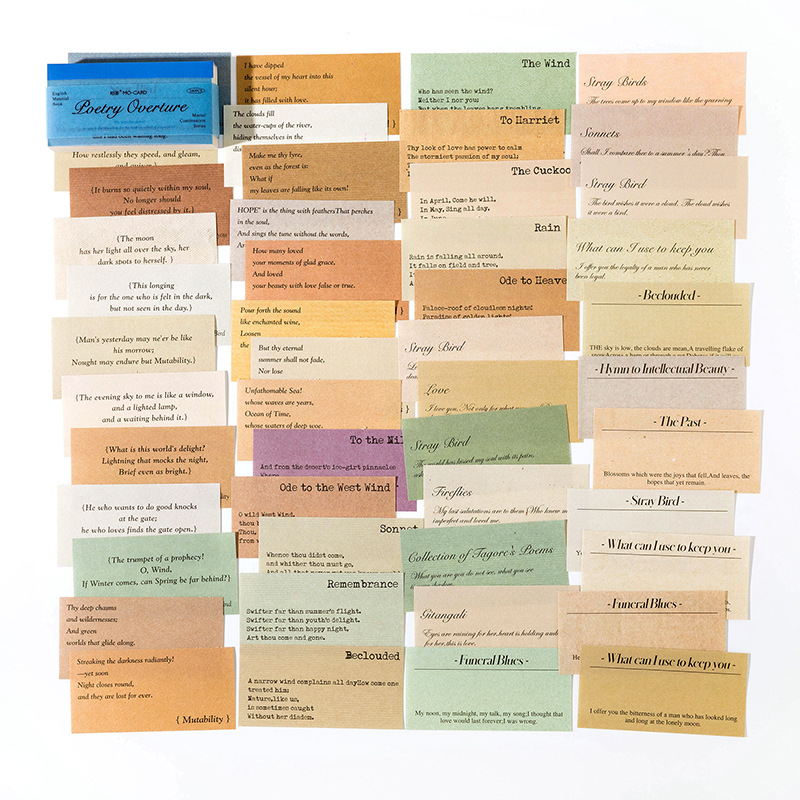 MO·CARD
English
Material
Book
Poetry Overture
Material
Combination
Series
How restlessly they speed, and gleam,
{It burns so quietly within my soul,
No longer should
you feel distressed by it.}
{The moon
has her light all over the sky, her
dark spots to herself. }
{This longing
is for the one who is felt in the dark,
but not seen in the day.}
{Man's yesterday may ne'er be like
his morrow;
Nought may endure but Mutability.}
{The evening sky to me is like a window,
and a lighted lamp,
and a waiting behind it.}
{What is this world's delight?
Lightning that mocks the night,
Brief even as bright.}
{He who wants to do good knocks
at the gate;
he who loves finds the gate open.}
{The trumpet of a prophecy!
O, Wind,
If Winter comes, can Spring be far behind?}
Thy deep chasms
and wildernesses;
And green
worlds that glide along.
Streaking the darkness radiantly!
—yet soon
Night closes round,
and they are lost for ever.
{ Mutability }
I have dipped
the vessel of my heart into this
silent hour;
it has filled with love.
The clouds fill
the water-cups of the river,
hiding themselves in the
Make me thy lyre,
even as the forest is:
What if
my leaves are falling like its own!
HOPE" is the thing with feathersThat perches
in the soul,
And sings the tune without the words,
How many loved
your moments of glad grace,
And loved
your beauty with love false or true.
Pour forth the sound
like enchanted wine,
Loosen
the
But thy eternal
summer shall not fade,
Nor lose
Unfathomable Sea!
whose waves are years,
Ocean of Time,
whose waters of deep woe.
To the Nil
And from the desert's ice-girt pinnacles
Where
Ode to the West Wind
O wild West Wind,
thou
Thou,
from
Sonnet
Whence thou didst come,
and whither thou must go,
Remembrance
Swifter far than summer's flight.
Swifter far than youth's delight.
Swifter far than happy night.
Art thou come and gone.
Beclouded
A narrow wind complains all dayHow come one
treated him;
Nature,like us,
is sometimes caught
Without her diadem.
The Wind
Who has seen the wind?
Neither I nor you;
But when the leaves hang trembling
To Harriet
Thy look of love has power to calm
The stormiest passion of my soul;
The Cuckoo
In April, Come he will,
In May, Sing all day.
In June,
Rain
Rain is falling all around,
It falls on field and tree,
Ode to Heave
Palace-roof of cloudless nights!
Paradise of golden lights!
Stray Bird
Love
I love you, Not only for what
Stray Bird
The world has kissed my soul with its pain,
Fireflies
My last salutations are to them (Who knew me
imperfect and loved me.
Collection of Tagore's Poems
What you are you do not see, what you see
Gitangali
Eyes are raining for her,heart is holding umb
for her,this is love.
- Funeral Blues -
My noon, my midnight, my talk, my song;I thought that
love would last forever;I was wrong.
Stray Birds
The trees come up to my window like the yearning
Sonnets
Shall I compare thee to a summer's day? Thou
Stray Bird
The bird wishes it were a cloud. The cloud wishes
it were a bird.
What can I use to keep you
I offer you the loyalty of a man who has never
been loyal.
- Beclouded -
THE sky is low, the clouds are mean,A travelling flake of
- Hymn to Intellectual Beauty -
- The Past -
Blossoms which were the joys that fell,And leaves, the
hopes that yet remain.
- Stray Bird -
- What can I use to keep you -
- Funeral Blues -
- What can I use to keep you -
I offer you the bitterness of a man who has looked long
and long at the lonely moon.